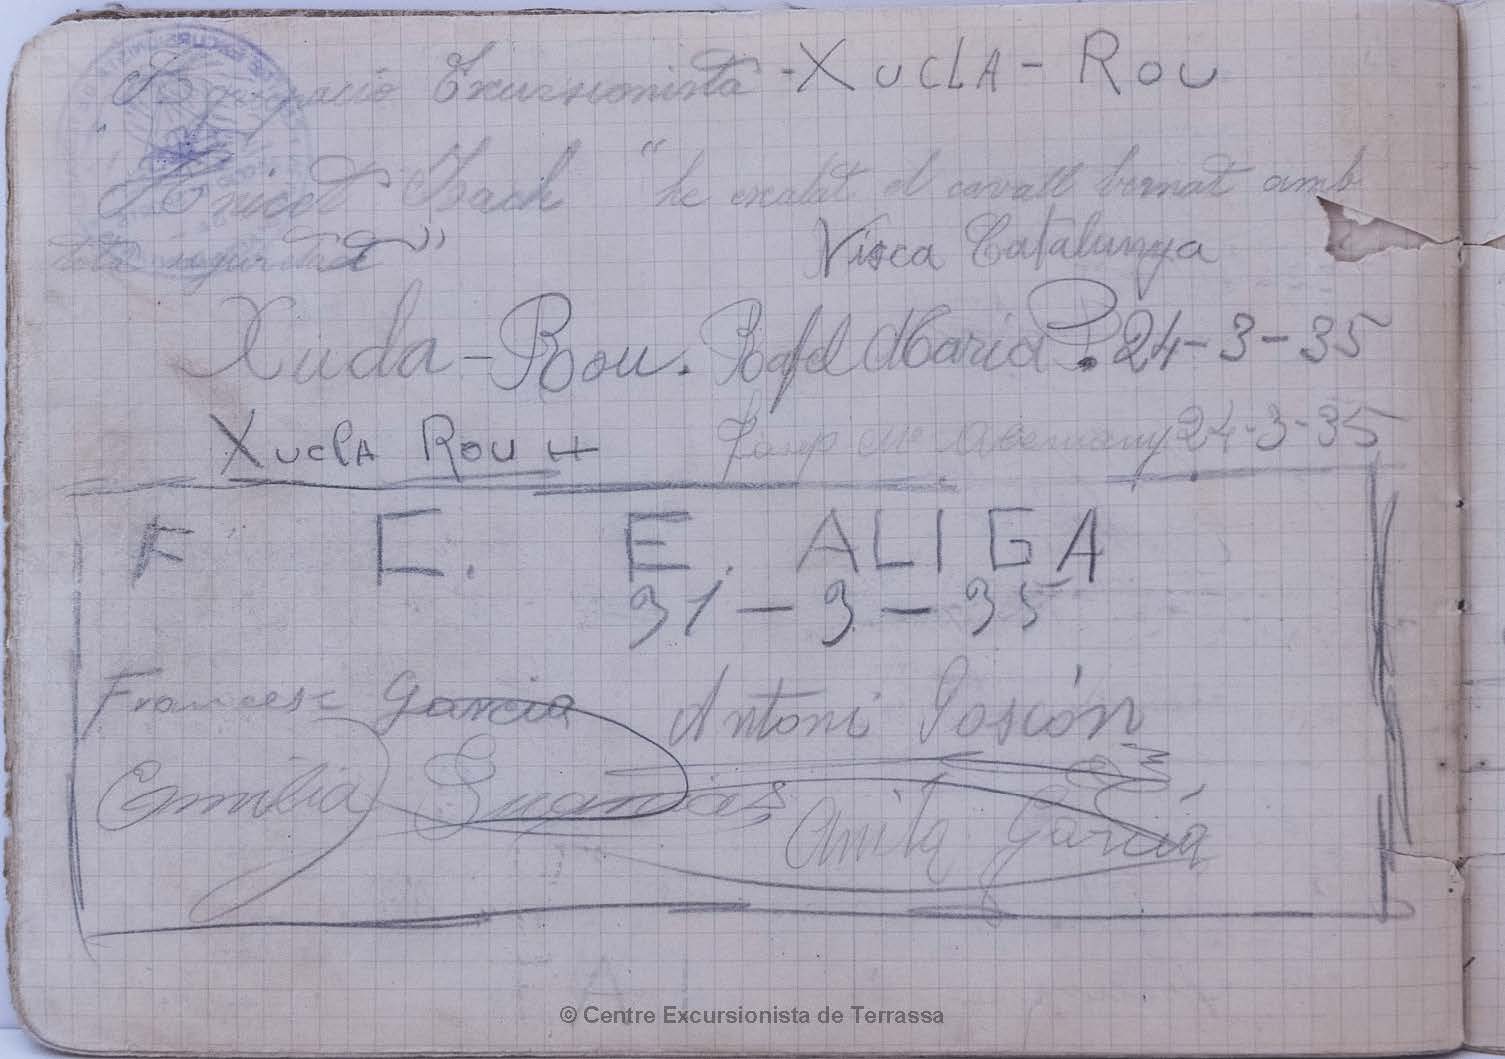 Agrupació Excursionista - XUCLA - ROU
Bach "he escalat el cavall bernat amb
tota seguritat"
Visca Catalunya
Xucla - Rou. Rafel Maria P. 24-3-35
XUCLA ROU 24-3-35
F C. E. ALIGA
31-3-35
Francesc Garcia Antoni
Emilia
Anita García
F A I
© Centre Excursionista de Terrassa